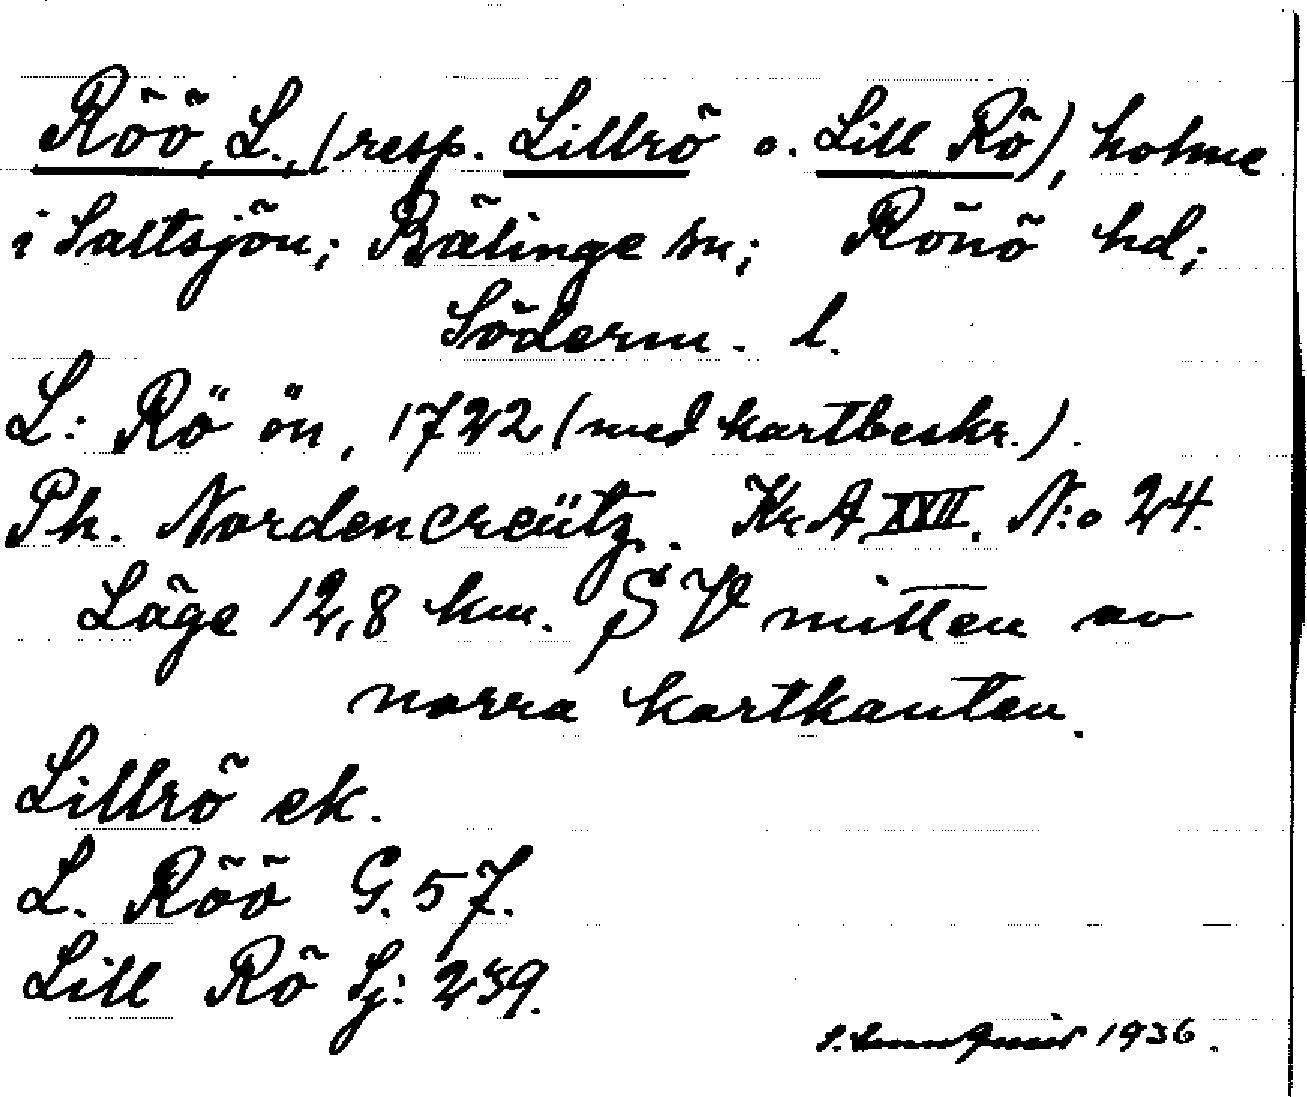 Röö, L., (resp. Lillrö o. Lill Rö), holme
i Saltsjön; Bälinge sn; Rönö hd;
Söderm. l.
L: Rö ön, 1722 (med kartbeskr.).
Ph. Nordencreütz. Kr. A. XVII. N:o 24.
Läge 12,8 km. SV mitten av
norra kartkanten.
Lillrö ek.
L. Röö G. 57.
Lill Rö Sj: 239.
1936.